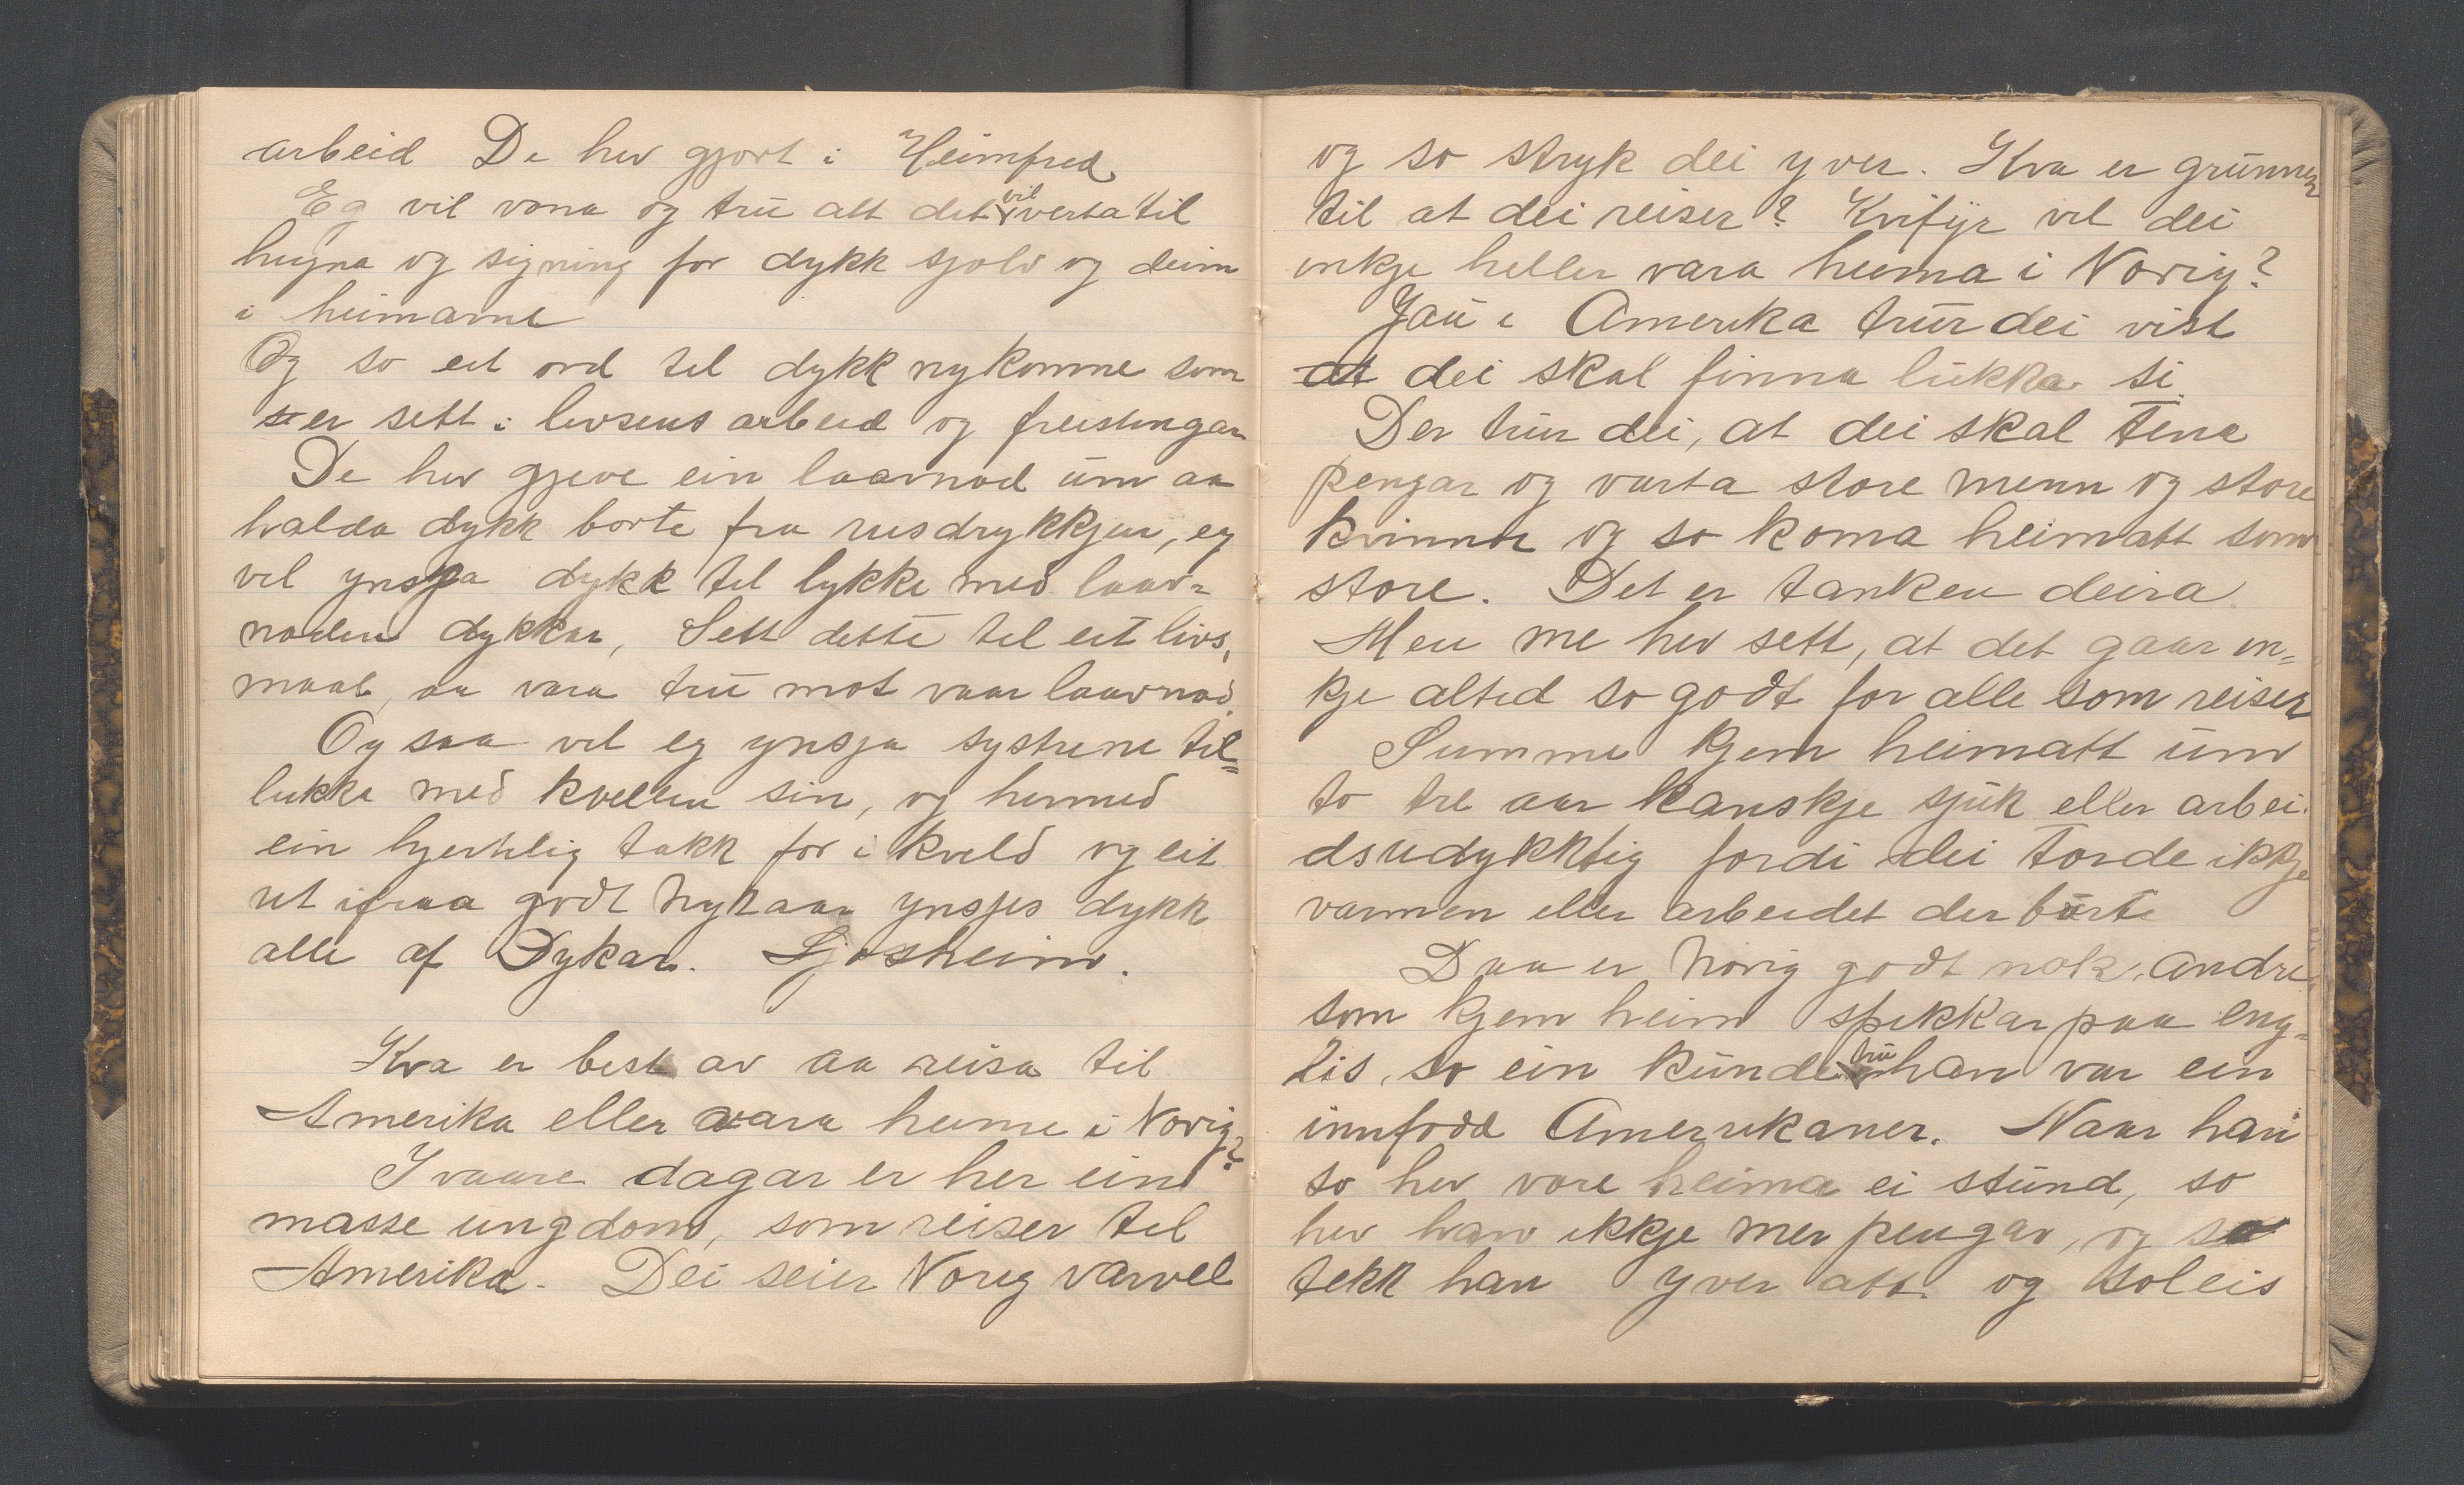 arbeid De hev gjort i Heimfred
Eg vil vona og tru att det vil verta til
hugna og signing for dykk sjølv og deim
i heimarne
Og so eit ord til dykk nykomne som
er sett i livsens arbeid og freistingar
De hev gjeve ein laavnad um aa
halda dykk borte fra rusdrykkjen, eg
vil ynsja dykk til lykke med laav=
naden dykkar, Sett dette til eit livs,
maal, aa vara tru mot vaar laavnad.
Og saa vil eg ynsja systrene til=
lukka med kvellen sin, og hermed
ein hjertelig takk for i kveld og eit
rit ifraa godt Nyttaar ynsjes dykk
alle af Dykar. Ljosheim.
Kva er best av aa reisa til
Amerika eller vara heime i Norig?
I vaare dagar er her ein
masse ungdom, som reiser til
Amerika. Dei seier Noreg varvel
og so stryk dei yver. Kva er grunnen
til at dei reiser? Kvifyr vil dei
inkje heller vara heima i Norig?
Jau i Amerika trur dei vist
at dei skal finna lukka si.
Der trur dei, at dei skal tena
pengar og varta store menn og store
kvinnor og so koma heimatt som
store. Det er tanken deira
Men me hev sett, at det gaar in=
kje altid so godt for alle som reiser
Summe kjem heimatt um
to tre aar kanskje sjuk eller arbei.
dsudykktig fordi dei torde ikkje
varmen eller arbeidet der burte
Daa er Norig godt nok. Andre
som kjem heim spikkar paa eng=
lis, so ein kunde tru han var ein
innfødd Amerrikaner. Naar han
so hev vore heima ei stund, so
hev han ikkje mer pengar, og so
tekk han yver att. og soleis